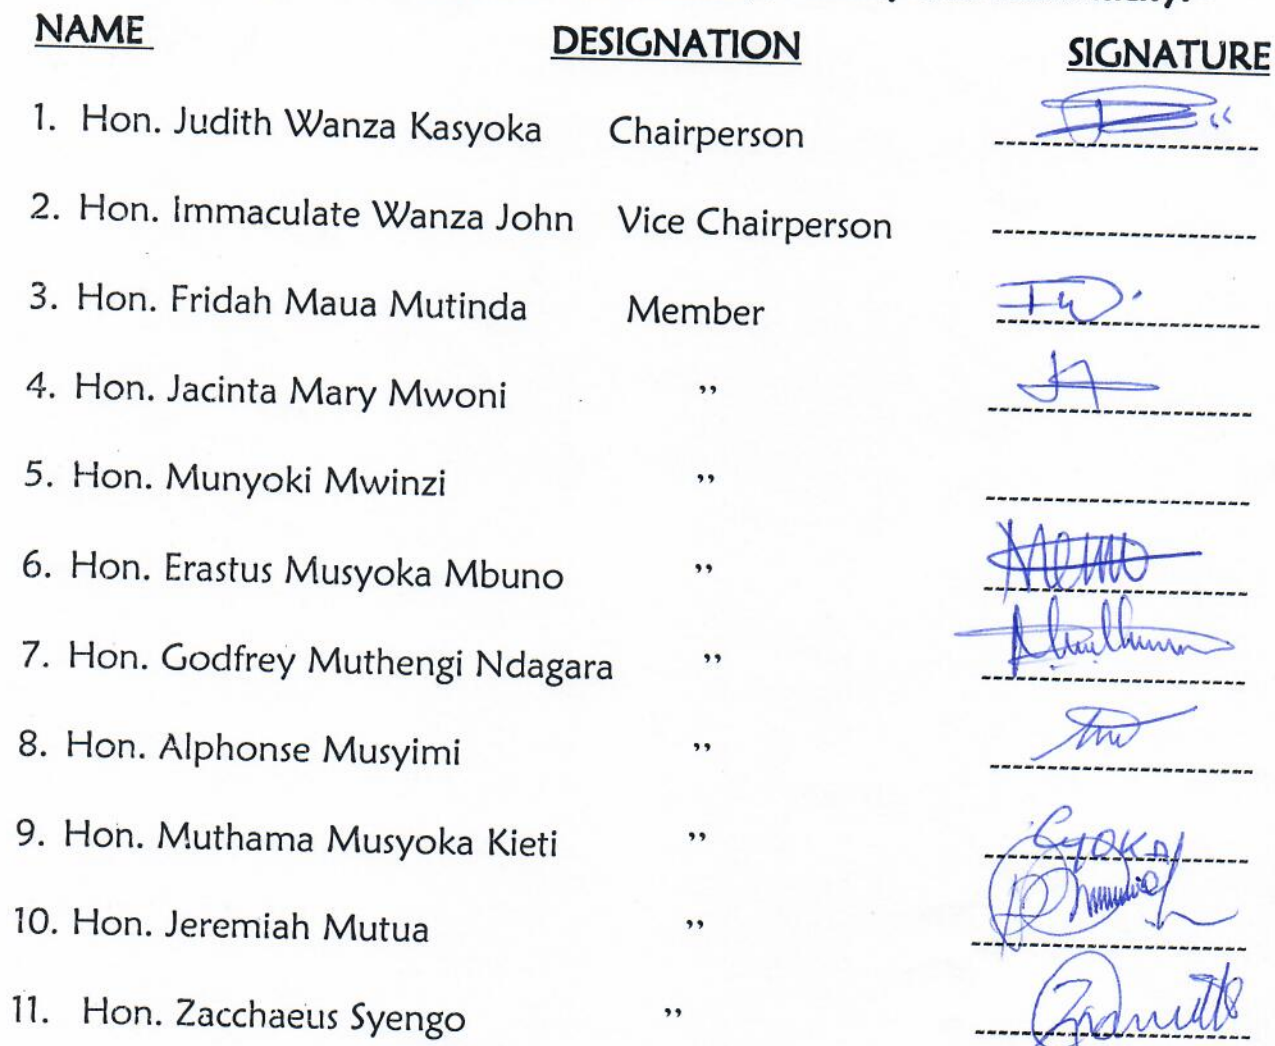 NAME DESIGNATION SIGNATURE
1. Hon. Judith Wanza Kasyoka Chairperson
2. Hon. Immaculate Wanza John Vice Chairperson
3. Hon. Fridah Maua Mutinda Member
4. Hon. Jacinta Mary Mwoni ,,
5. Hon. Munyoki Mwinzi ,,
6. Hon. Erastus Musyoka Mbuno ,,
7. Hon. Godfrey Muthengi Ndagara ,,
8. Hon. Alphonse Musyimi ,,
9. Hon. Muthama Musyoka Kieti ,,
10. Hon. Jeremiah Mutua ,,
11. Hon. Zacchaeus Syengo ,,